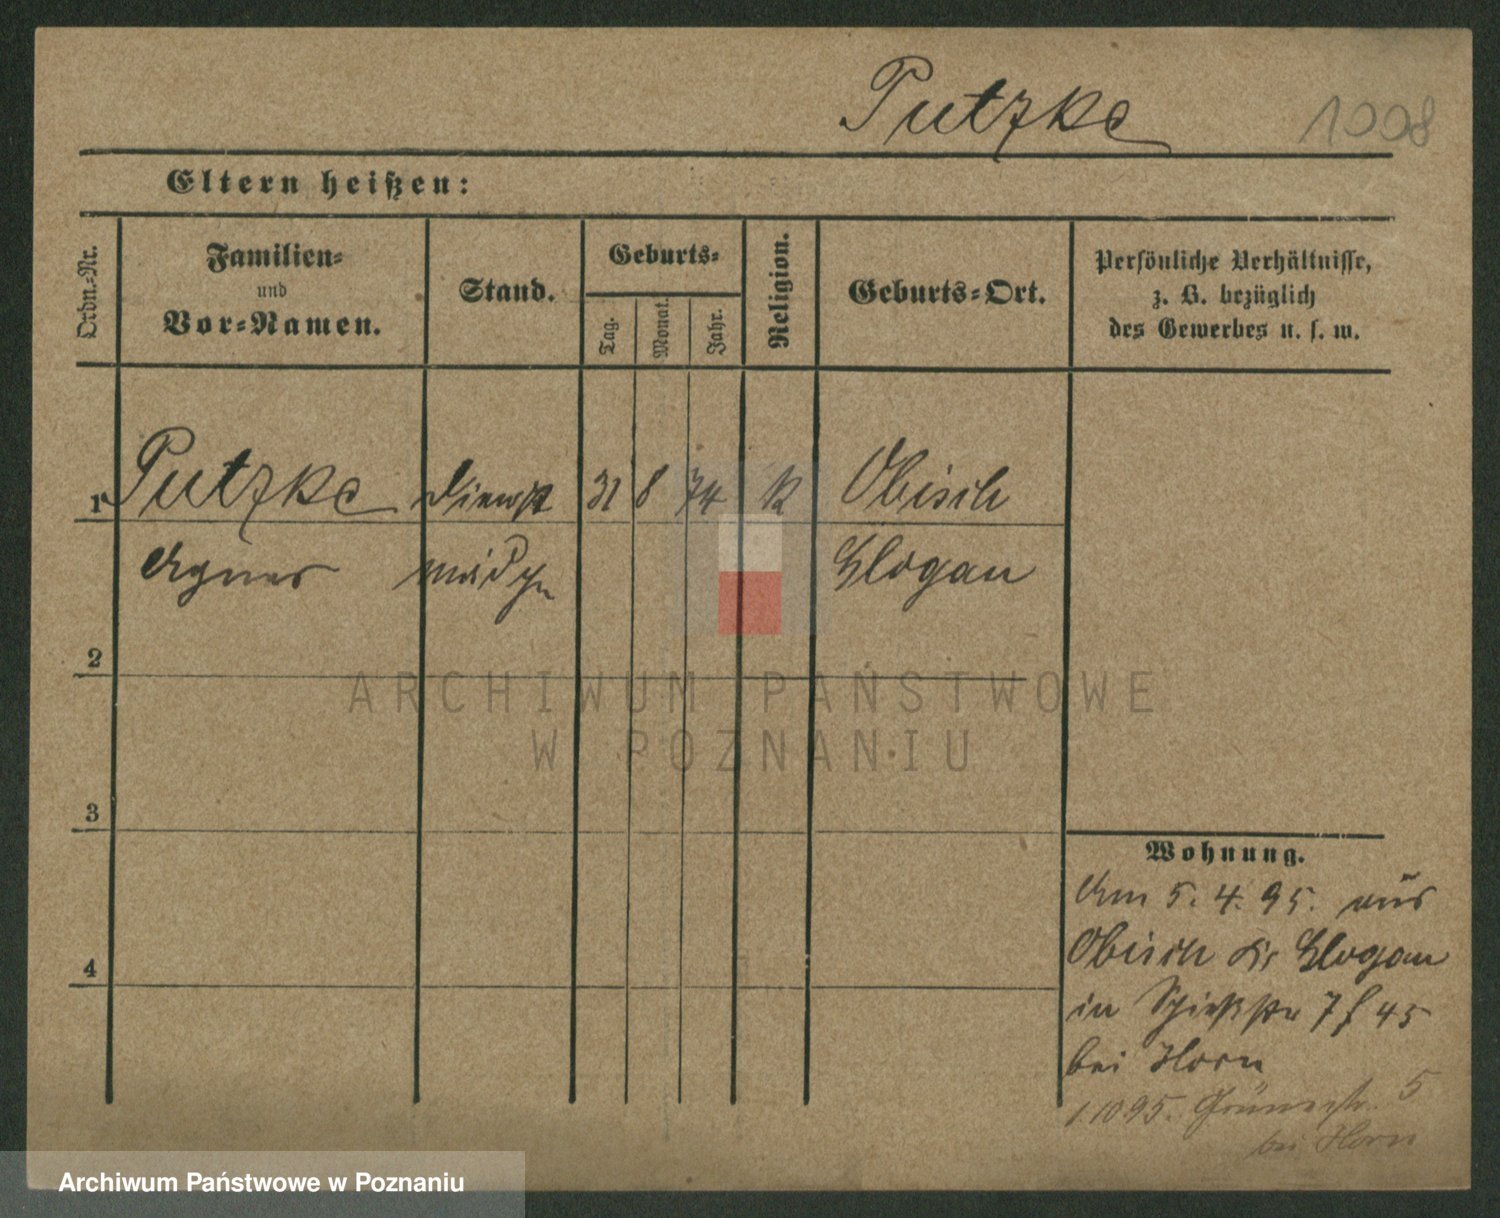 Putzke 1008
Eltern heißen:
Ordn.-Nr.
Familien-
und
Vor-Namen.
Stand.
Geburts-
Tag.
Monat.
Jahr.
Religion.
Geburts-Ort.
Persönliche Verhältnisse,
z. B. bezüglich
des Gewerbes u. s. w.
1 Putzke Dienst 31 8 74 K Obisch
Agnes mädch Glogau
2
ARCHIWUM PAŃSTWOWE
W POZNANIU
3
4
Wohnung.
Am 5.4.95. aus
Obisch Kr Glogau
in Schießstr 7 f 45
bei Horn
1.10 95. Grünestr. 5
bei Horn
Archiwum Państwowe w Poznaniu